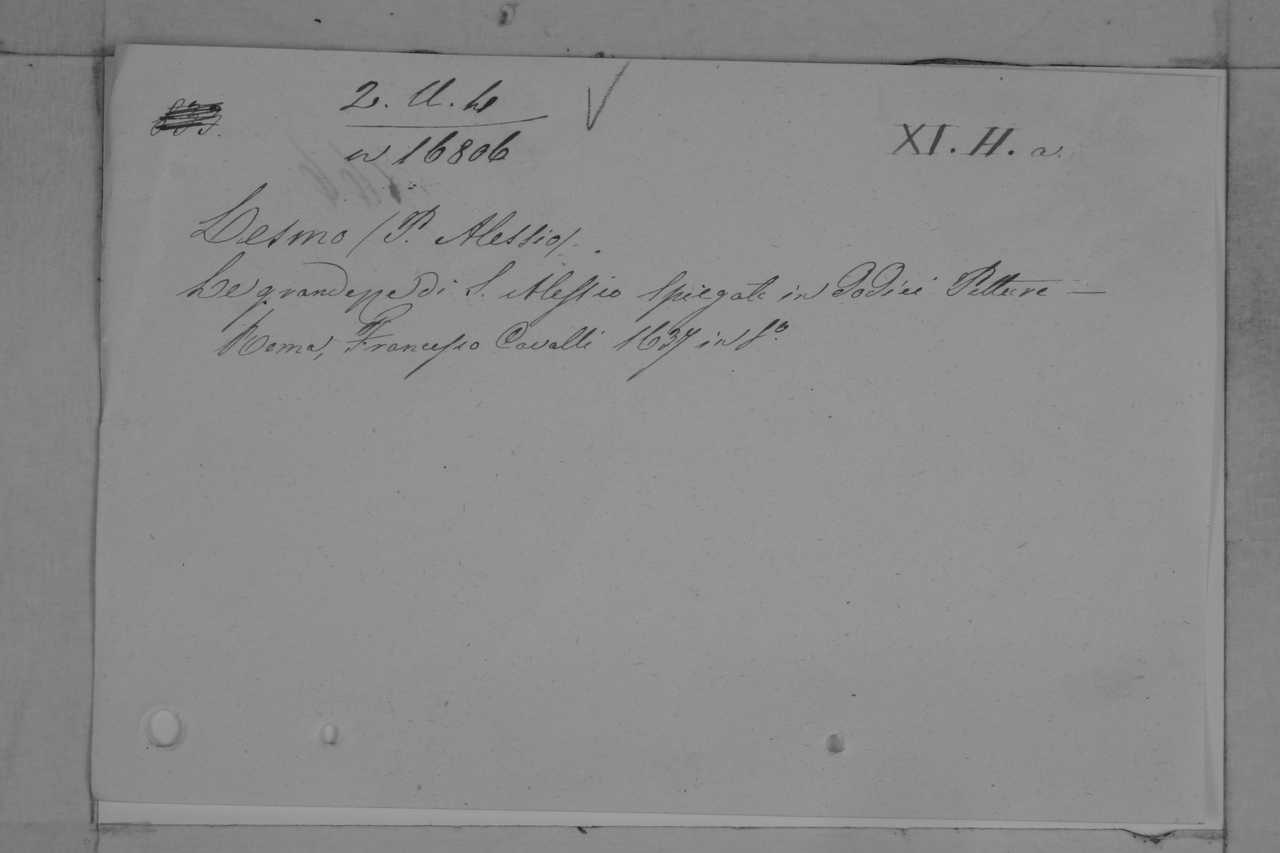 2. U. h
n 16806
XI. H. a.
Lesmo (P. Alessio).
Le grandezze di S. Alessio spiegate in Dodici Pitture —
Roma, Francesco Cavalli 1637 in 8º